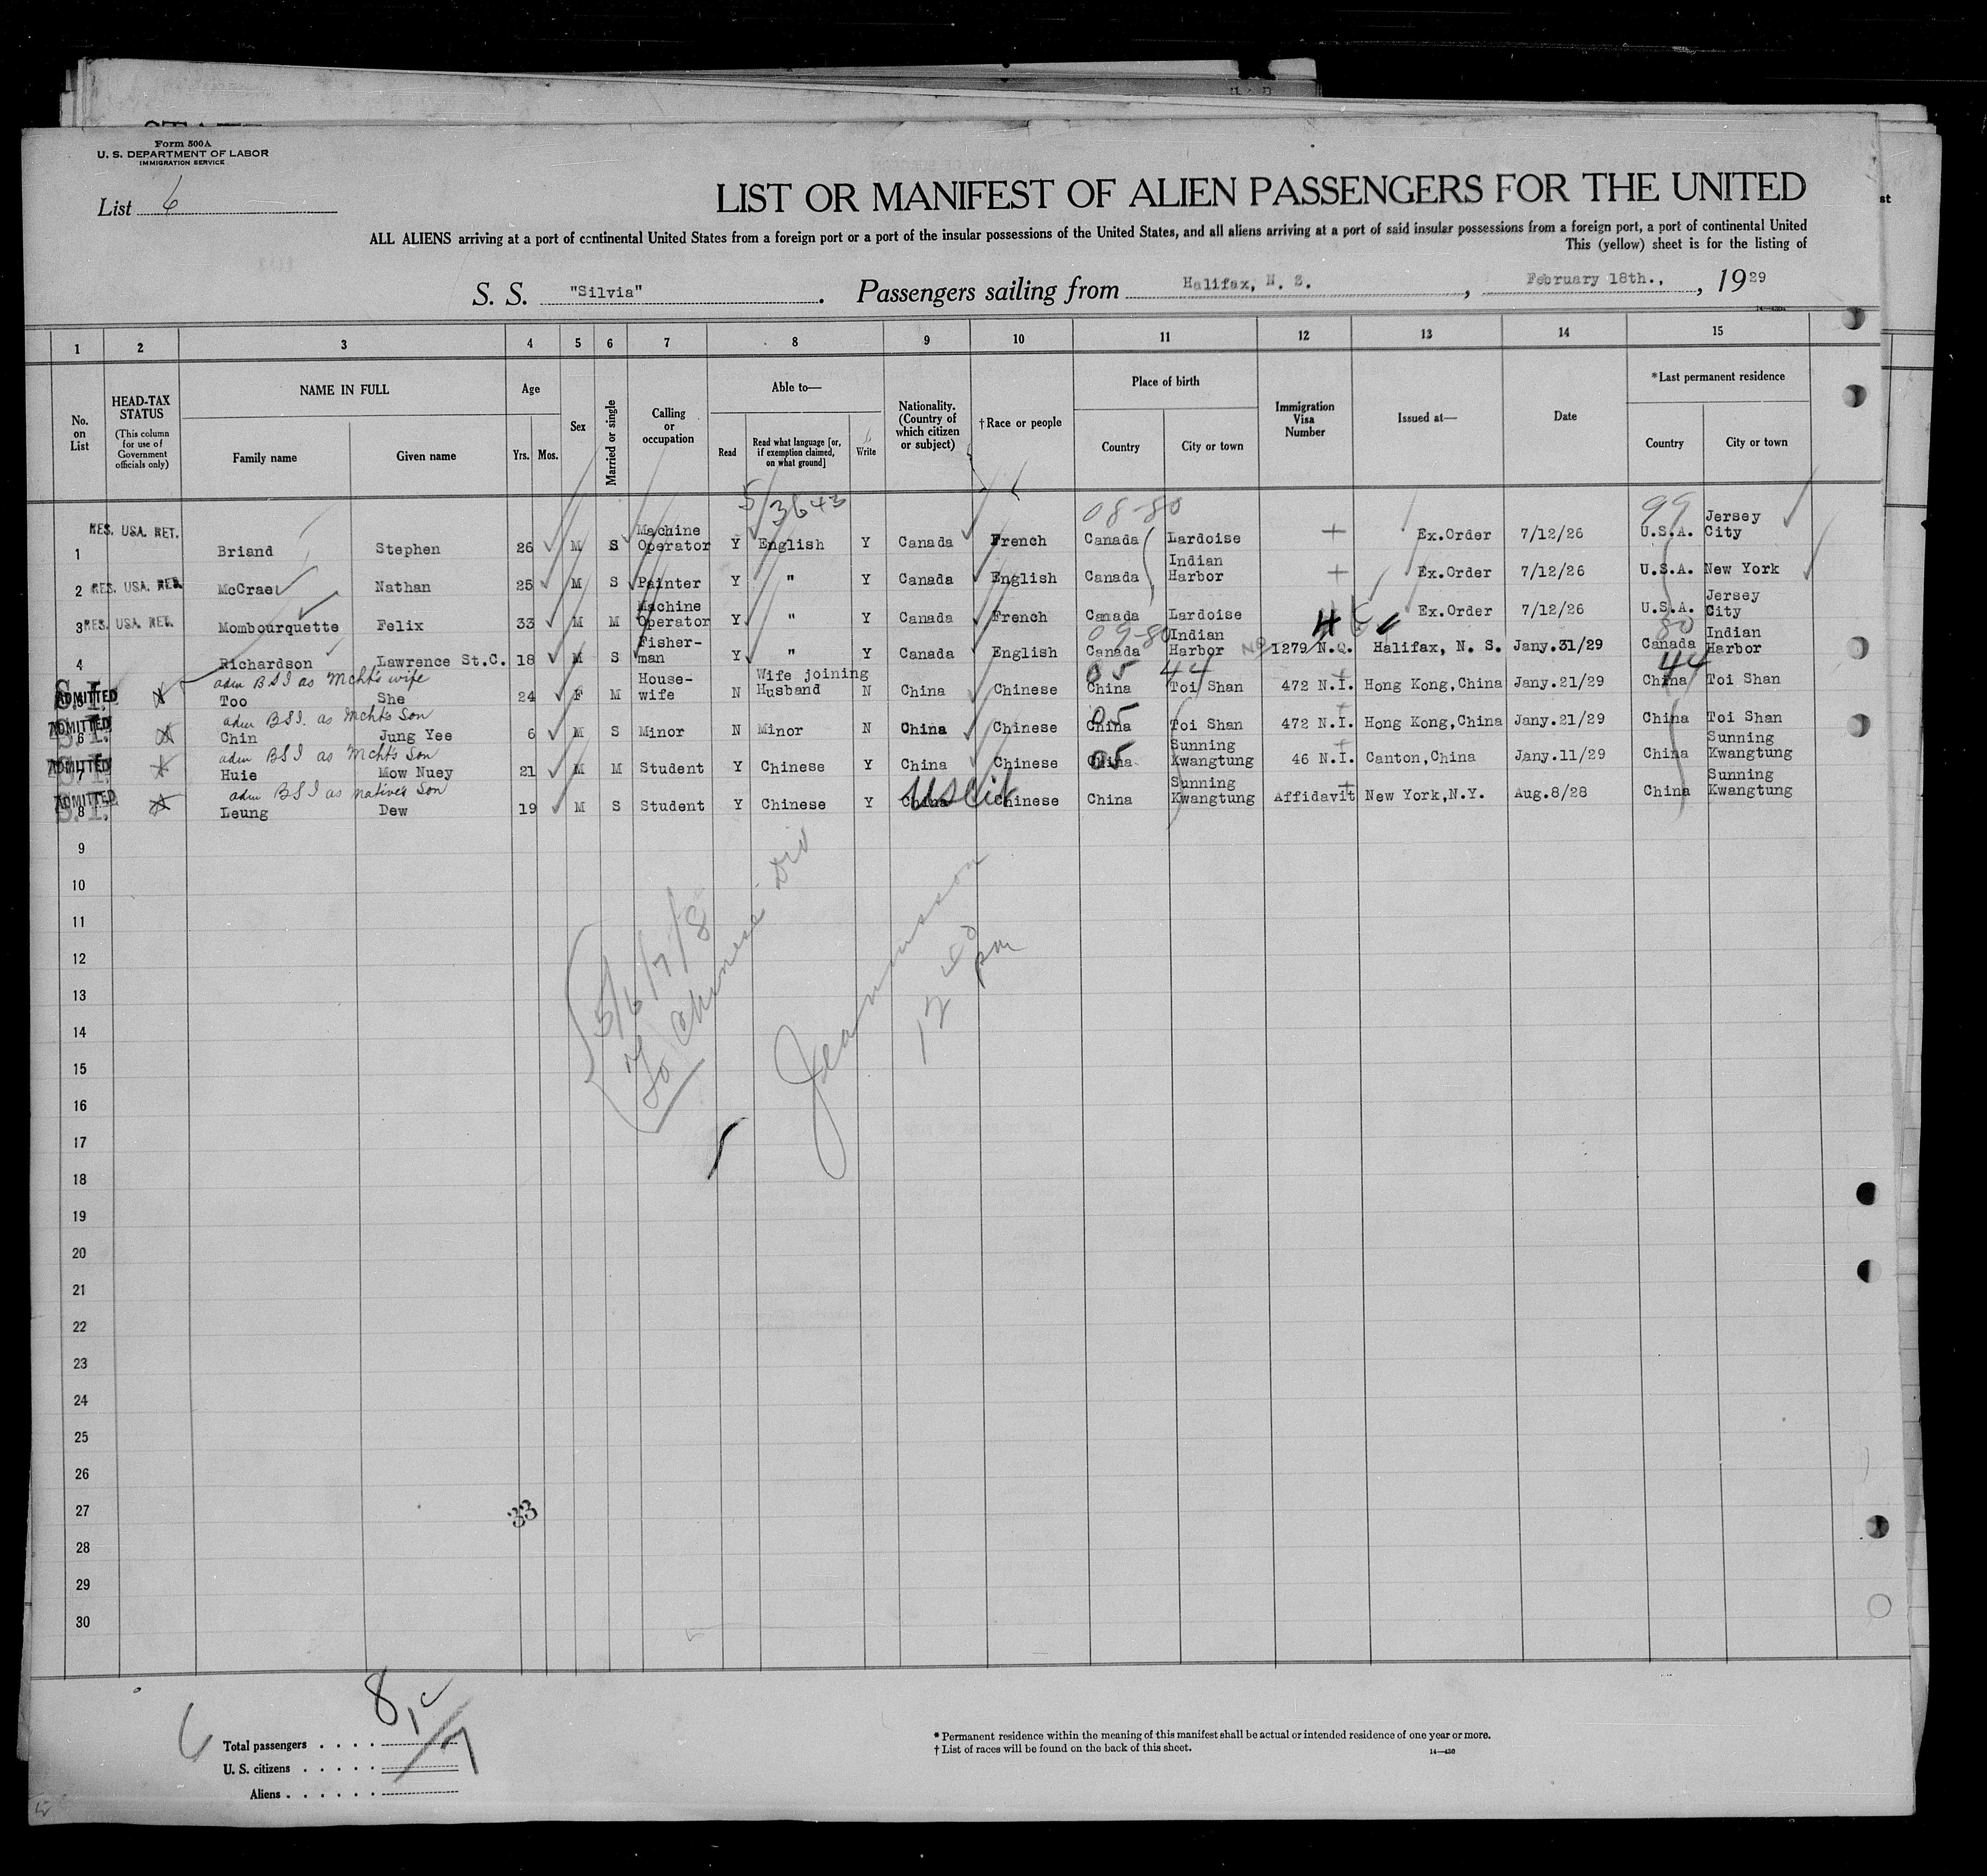 Form 500A
U. S. DEPARTMENT OF LABOR
IMMIGRATION SERVICE
List 6
LIST OR MANIFEST OF ALIEN PASSENGERS FOR THE UNITED
ALL ALIENS arriving at a port of continental United States from a foreign port or a port of the insular possessions of the United States, and all aliens arriving at a port of said insular possessions from a foreign port, a port of continental United
This (yellow) sheet is for the listing of
S. S. "Silvia". Passengers sailing from Halifax, N. S., February 18th., , 1929
1 2 3 4 5 6 7 8 9 10 11 12 13 14 15
No. on List
HEAD-TAX STATUS (This column for use of Government officials only)
NAME IN FULL Family name Given name
Age Yrs. Mos.
Sex
Married or single
Calling or occupation
Able to— Read Read what language [or, if exemption claimed, on what ground] Write
Nationality. (Country of which citizen or subject)
†Race or people
Place of birth Country City or town
Immigration Visa Number
Issued at—
Date
*Last permanent residence Country City or town
5/3643 08-80 99
1 RES. USA. RET. Briand Stephen 26 M S Machine Operator Y English Y Canada French Canada Lardoise Ex.Order 7/12/26 U.S.A. Jersey City
2 RES. USA. RET. McCrae Nathan 25 M S Painter Y " Y Canada English Canada Indian Harbor Ex.Order 7/12/26 U.S.A. New York
3 RES. USA. RET. Mombourquette Felix 33 M M Machine Operator Y " Y Canada French Canada Lardoise Ex.Order 7/12/26 U.S.A. Jersey City
09-80 80
4 Richardson Lawrence St.C. 18 M S Fisherman Y " Y Canada English Canada Indian Harbor 1279 N.Q. Halifax, N. S. Jany.31/29 Canada Indian Harbor
adm BSI as Mcht's wife 05 44 44
S.I. ADMITTED Too She 24 F M House-wife N Wife joining Husband N China Chinese China Toi Shan 472 N.I. Hong Kong,China Jany.21/29 China Toi Shan
adm BSI. as Mcht's Son 05
S.I. ADMITTED 6 Chin Jung Yee 6 M S Minor N Minor N China Chinese China Toi Shan 472 N.I. Hong Kong,China Jany.21/29 China Toi Shan
adm BSI as Mcht's Son 05
S.I. ADMITTED 7 Huie Mow Nuey 21 M M Student Y Chinese Y China Chinese China Sunning Kwangtung 46 N.I. Canton,China Jany.11/29 China Sunning Kwangtung
adm BSI as native's Son US Cit
S.I. ADMITTED 8 Leung Dew 19 M S Student Y Chinese Y China Chinese China Sunning Kwangtung Affidavit New York,N.Y. Aug.8/28 China Sunning Kwangtung
9
10
11
12
13
14
15
16
17
18
19
20
21
22
23
24
25
26
27
28
29
30
5/6/7/8
To Chinese Div
12
pm
33
6
8
Total passengers
U. S. citizens
Aliens
* Permanent residence within the meaning of this manifest shall be actual or intended residence of one year or more.
† List of races will be found on the back of this sheet.
14—430